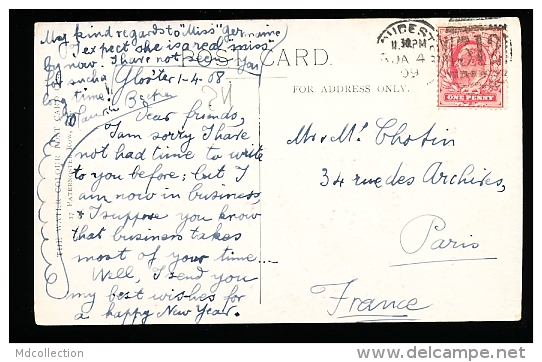 My kind regards to "Miss" Germaine
I expect she is a real "miss"
by now. I have not seen you
for such a
long time!
Gloster 1-4-08
POST CARD.
FOR ADDRESS ONLY.
11.30PM
JA 4
09
ONE PENNY
Dear friends,
I am sorry I have
not had time to write
to you before; but I
am now in business,
& I suppose you know
that business takes
most of your time....
Well, I send you
my best wishes for
a happy New Year.
Mr & Mrs Chotin
34 rue des Archives,
Paris
France
THE WATER COLOUR POST CARD
17 PATERNOSTER ROW,
Mdcollection
www.delcampe.net